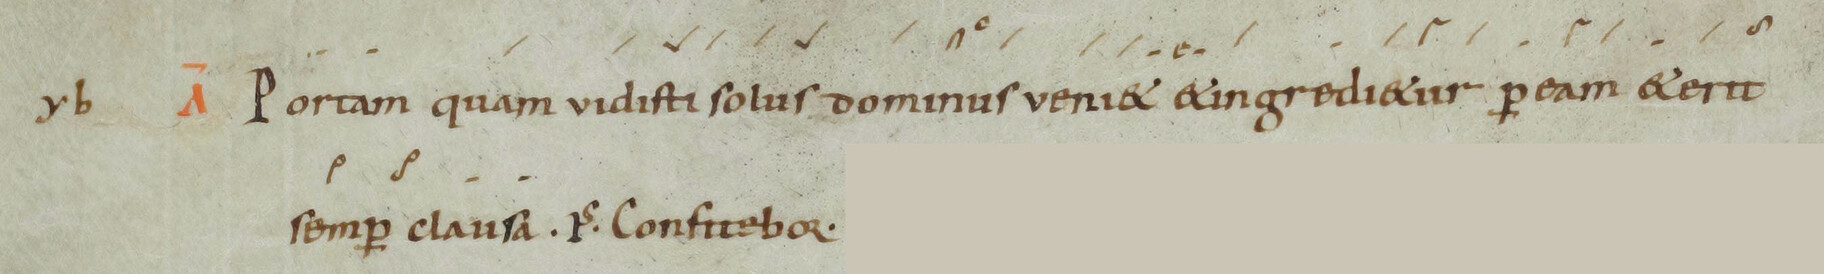 yb A Portam quam vidisti solus dominus veni& &ingredi&ur p eam &erit
semp clausa . Ps. Confitebor.